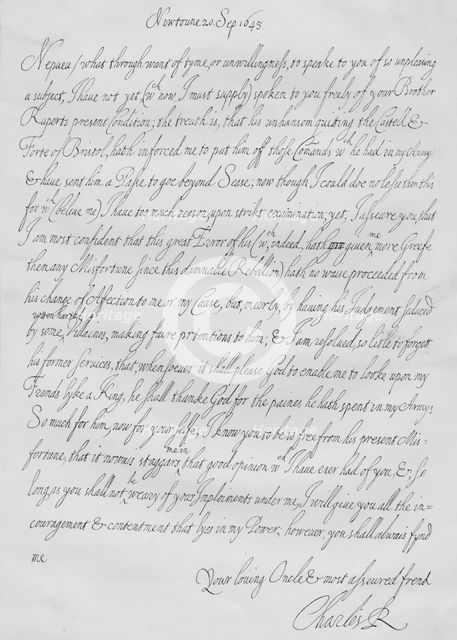 Newtoune 20 Sep: 1645
Nepueu/ what through want of tyme, or unwillingness, to speake to you of so unpleasing
a subject, I have not yet (wch now I must supply) spoken to you freely of your Brother
Ruperts present Condition; the treuth is, that his unhansom quiting the Castell &
Forte of Bristol, hath inforced me to put him off those Com̄ands wch he had in my Army
& have sent him a Passe to goe beyond Sease; now though I could doe no lesse then this
for wch (belive me) I have too much reason, upon strikt examination; yet, I asseure you, that
I am most confident that this great Error of his (wch, indeed, hath given me more Greefe
then any Misfortune since this damnable Rebellion) hath no waise proceeded from
his change of Affection to me, or my Cause, but, meerly, by having his Judgement seduced
by some rotenharted Vilaines, making faire pretentions to him; & I am resolved, so litle to forget
his former Services, that, whensoever it shall please God to enable me to looke upon my
Frends lyke a King, he shall thanke God for the paines he hath spent in my Armys
So much for him, now for your selfe; I know you to be so free from his present Mis-
fortune, that it nowais staggars me in that good opinion wch I have ever had of you, & so
long as you shall not be weary of your Imploiments under me, I will give you all the in-
couragement & contentment that lyes in my Power; however, you shall always fynd
me
Your loving Oncle & most asseured frend
Charles R
heritage
heritage